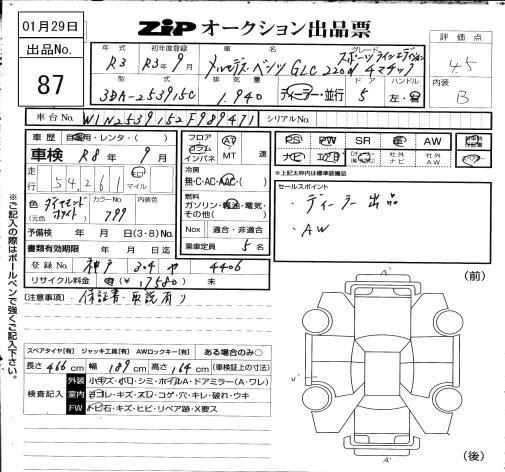 01月29日
出品No.
87
ZIP オークション出品票
評価点
4.5
内装
B
年式 初年度登録 車名 グレード
R3 R3年9月 メルセデス・ベンツ GLC 220d 4マチック
型式 排気量 ドア ハンドル
3DA-253915C 1.940 ディーゼル・並行 5 左・右
車台No. W1N2539152F989471 シリアルNo.
車歴 自家用・レンタ・( )
車検 R8年9月
走行 54,261 km マイル
色 ダイヤモンドホワイト
(元色 ) カラーNo. 799 内装色
予備検 年 月 日(3・8)No.
書類有効期限 年 月 日迄
登録No. 神戸 304 や 4406
リサイクル料金 (¥17580) 未
フロア コラム インパネ AT MT 速
冷房 無・C・AC・AAC・( )
燃料 ガソリン・軽油・電気・その他( )
Nox 適合・非適合
乗車定員 5名
PS PW SR 革 AW
ナビ エアB 社外ナビ 社外AW
※上記太枠内は標準装備品
セールスポイント
・ディーラー出品
・AW
(注意事項)・保証書・車説有り
スペアタイヤ[有] ジャッキ工具[有] AWロックキー[有] ある場合のみ○
長さ466cm 幅189cm 高さ164cm (車検証上の寸法)
検査記入
外装 小キズ・小凹・シミ・ホイルA・ドアミラー(A・ワレ)
室内 ヨゴレ・キズ・スレ・コゲ・穴・キレ・破れ・ウキ
FW トビ石・キズ・ヒビ・リペア跡・X要ス
(前)
A'
U'
A'
(後)
※ご記入の際はボールペンで強くご記入下さい。